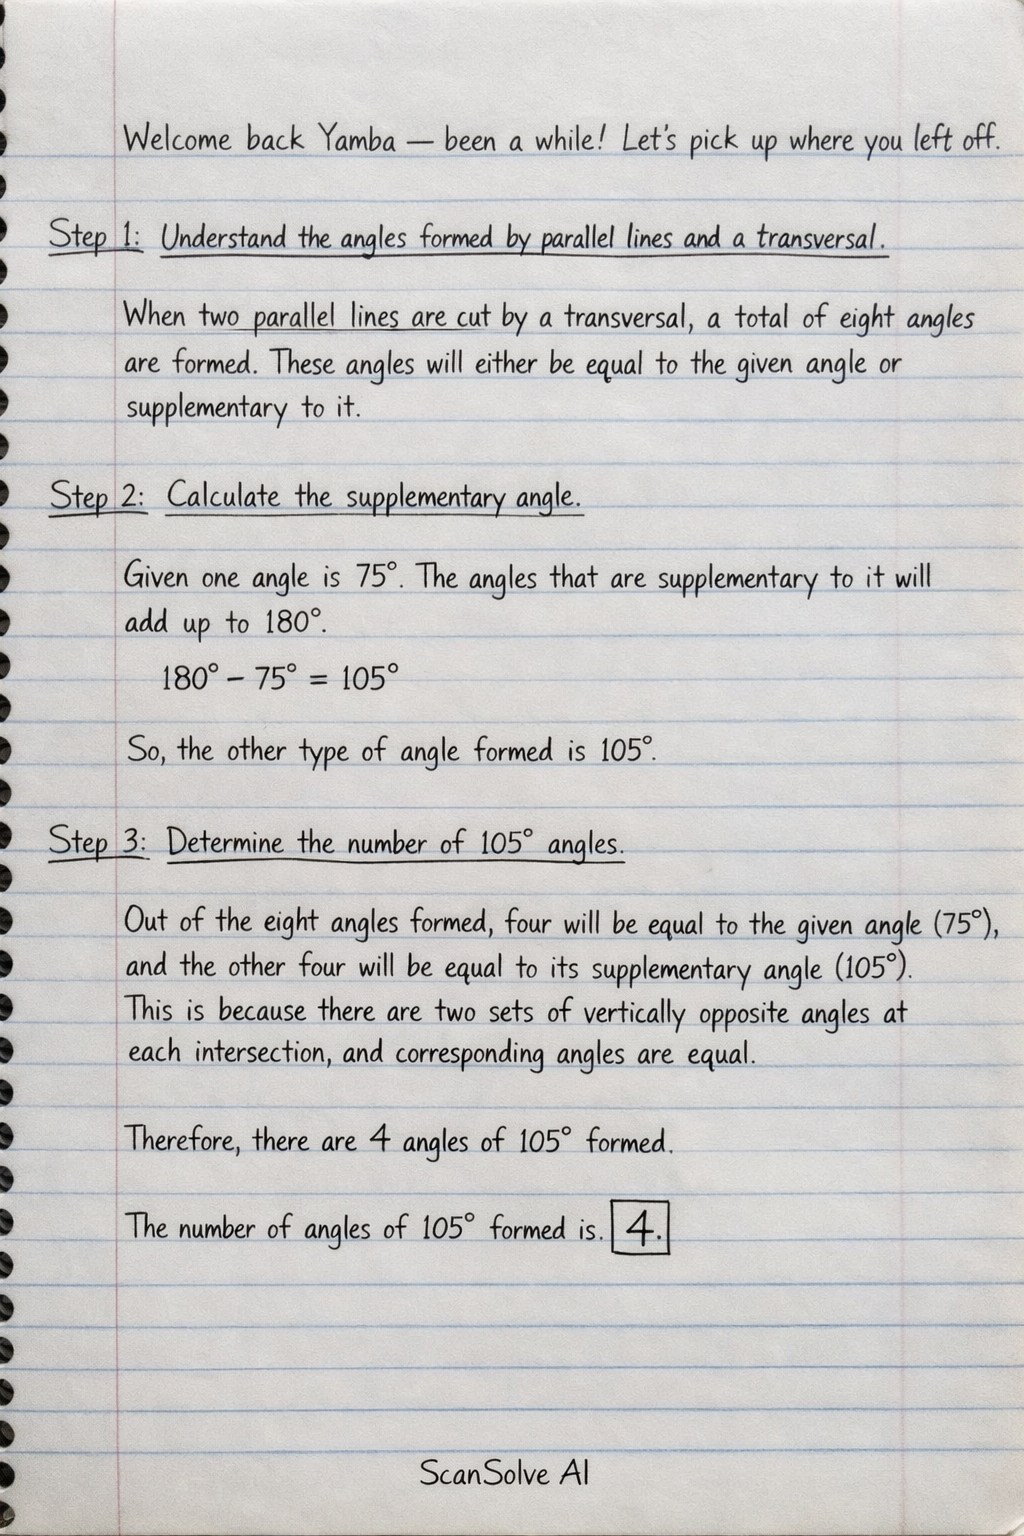 Welcome back Yamba — been a while! Let's pick up where you left off.
Step 1: Understand the angles formed by parallel lines and a transversal.
When two parallel lines are cut by a transversal, a total of eight angles
are formed. These angles will either be equal to the given angle or
supplementary to it.
Step 2: Calculate the supplementary angle.
Given one angle is 75°. The angles that are supplementary to it will
add up to 180°.
180° – 75° = 105°
So, the other type of angle formed is 105°.
Step 3: Determine the number of 105° angles.
Out of the eight angles formed, four will be equal to the given angle (75°),
and the other four will be equal to its supplementary angle (105°).
This is because there are two sets of vertically opposite angles at
each intersection, and corresponding angles are equal.
Therefore, there are 4 angles of 105° formed.
The number of angles of 105° formed is. 4.
ScanSolve AI